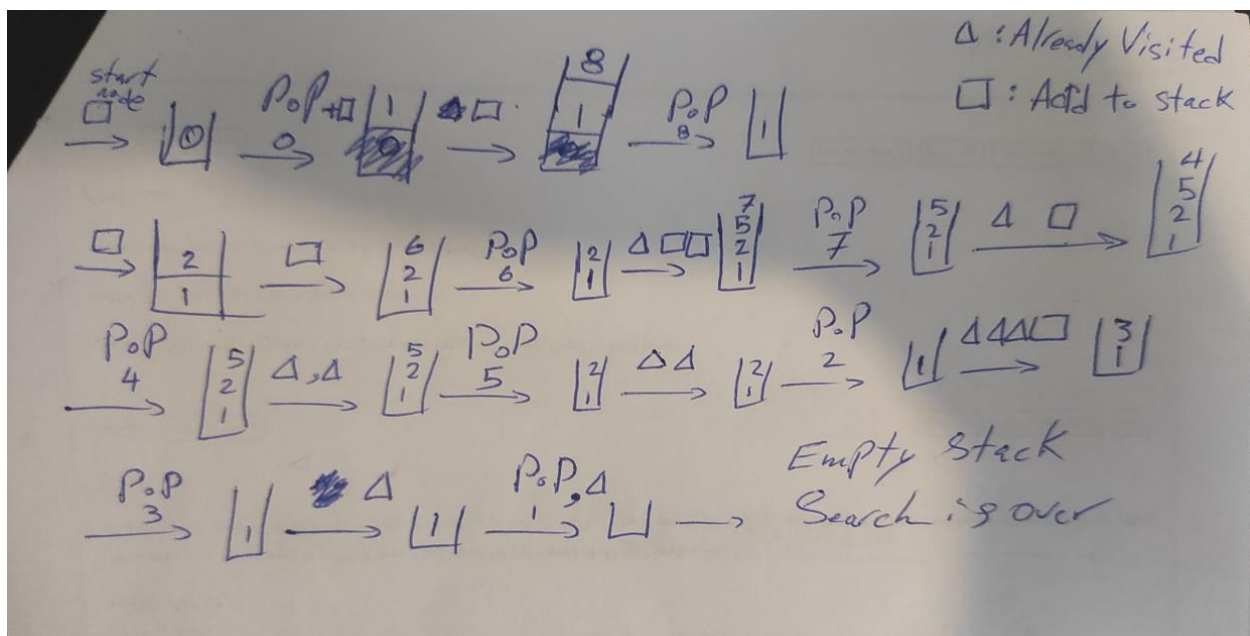 Δ : Already Visited
□ : Add to stack
start node □ → 0 PoP+□ 0 → 1 □ → 8 1 PoP 8 → 1
□ → 2 1 □ → 6 2 1 PoP 6 → 2 1 Δ □□ → 7 5 2 1 PoP 7 → 5 2 1 Δ □ → 4 5 2 1
PoP 4 → 5 2 1 Δ,Δ → 5 2 1 PoP 5 → 2 1 Δ Δ → 2 1 PoP 2 → 1 ΔΔΔ□ → 3 1
PoP 3 → 1 Δ → 1 PoP,Δ 1 → → Empty stack
Search is over